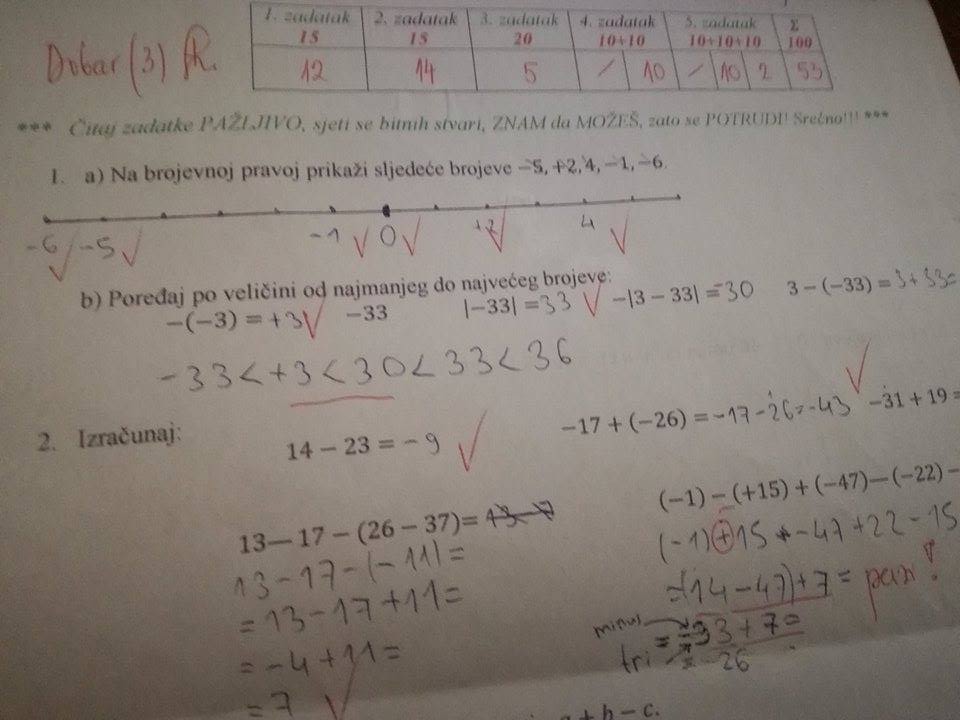 Dobar (3)
1. zadatak 2. zadatak 3. zadatak 4. zadatak 5. zadatak Σ
15 15 20 10+10 10+10+10 100
12 14 5 / 10 / 10 2 53
*** Čitaj zadatke PAŽLJIVO, sjeti se bitnih stvari, ZNAM da MOŽEŠ, zato se POTRUDI! Srećno!!! ***
1. a) Na brojevnoj pravoj prikaži sljedeće brojeve −5, +2, 4, −1, −6.
-6 -5 -1 0 +2 4
b) Poredaj po veličini od najmanjeg do najvećeg brojeve:
−(−3) = +3 −33 |−33| = 33 −|3 − 33| = -30 3 − (−33) = 3 + 33 =
-33 < +3 < 30 < 33 < 36
2. Izračunaj:
14 − 23 = -9 −17 + (−26) = -17 - 26 = -43 −31 + 19 =
13—17 − (26 − 37)= (−1) − (+15) + (−47)—(−22) −
13 - 17 - (-11) = (-1) + 15 + -47 + 22 - 15
= 13 - 17 + 11 = =(14 - 47) + 7 = pazi!
= -4 + 11 = minus = -33 + 7 =
= 7 tri = -26
+ b − c.